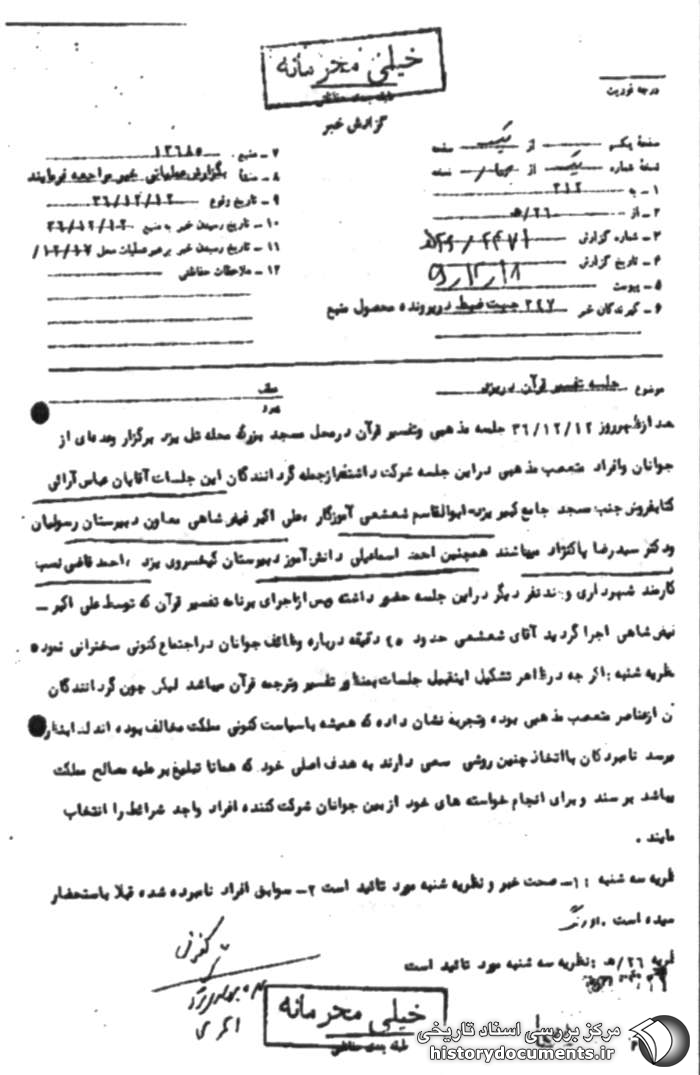 خیلی محرمانه
طبقه بندی حفاظتی
گزارش خبر
درجه فوریت
صفحهٔ یکم از یک صفحه
نسخهٔ شماره یک از نسخه
۱ ـ به ۳۱۲
۲ ـ از ۲۶/ه‍
۳ ـ شماره گزارش
۴ ـ تاریخ گزارش
۵ ـ پیوست
۶ ـ گیرندگان خبر ۲۴۷ جهت ضبط در پرونده محصول منبع
۷ ـ منبع ۱۲۶۸۵
۸ ـ منشأ بگزارش عملیاتی خبر مراجعه فرمایند
۹ ـ تاریخ وقوع ۳۶/۱۲/۱۲
۱۰ ـ تاریخ رسیدن خبر به منبع ۳۶/۱۲/۱۲
۱۱ ـ تاریخ رسیدن خبر برهبر عملیات محل ۱۲/۱۷/
۱۲ ـ ملاحظات حفاظتی
موضوع جلسه تفسیر قرآن در یزد
عطف
پیرو
بعد ازظهر روز ۳۶/۱۲/۱۲ جلسه مذهبی وتفسیر قرآن درمحل مسجد بزرگ محله تل یزد برگزار وعده‌ای از
جوانان وافراد متعصب مذهبی دراین جلسه شرکت داشتند ازجمله گردانندگان این جلسات آقایان عباس آرائی
کتابفروش جنب مسجد جامع کبیر یزد، ابوالقاسم شعشعی آموزگار ،علی اکبر فیض شاهی معاون دبیرستان رسولیان
ودکتر سیدرضا پاکنژاد میباشند همچنین احمد اسماعیلی دانش آموز دبیرستان کیخسروی یزد ،احمد قاضی نسب
کارمند شهرداری وچند نفر دیگر دراین جلسه حضور داشته وپس ازاجرای برنامه تفسیر قرآن که توسط علی اکبر ـ
فیض شاهی اجرا گردید آقای شعشعی حدود دقیقه درباره وظائف جوانان دراجتماع کنونی سخنرانی نموده
نظریه شنبه : اگر چه درظاهر تشکیل اینقبیل جلسات بمنظور تفسیر وترجمه قرآن میباشد لیکن چون گردانندگان
آن ازعناصر متعصب مذهبی بوده وتجربه نشان داده که همیشه باسیاست کنونی مملکت مخالف بوده اند لذا بنظر
میرسد نامبردگان بااتخاذ چنین روشی سعی دارند به هدف اصلی خود که همانا تبلیغ بر علیه مصالح مملکت
میباشد برسند وبرای انجام خواسته های خود ازبین جوانان شرکت کننده افراد واجد شرائط را انتخاب
نمایند .
نظریه سه شنبه : ۱ـ صحت خبر و نظریه شنبه مورد تائید است ۲ـ سوابق افراد نامبرده شده قبلا باستحضار
رسیده است .
نظریه ۲۶/ه‍ : نظریه سه شنبه مورد تائید است
خیلی محرمانه
طبقه بندی حفاظتی
مرکز بررسی اسناد تاریخی
historydocuments.ir